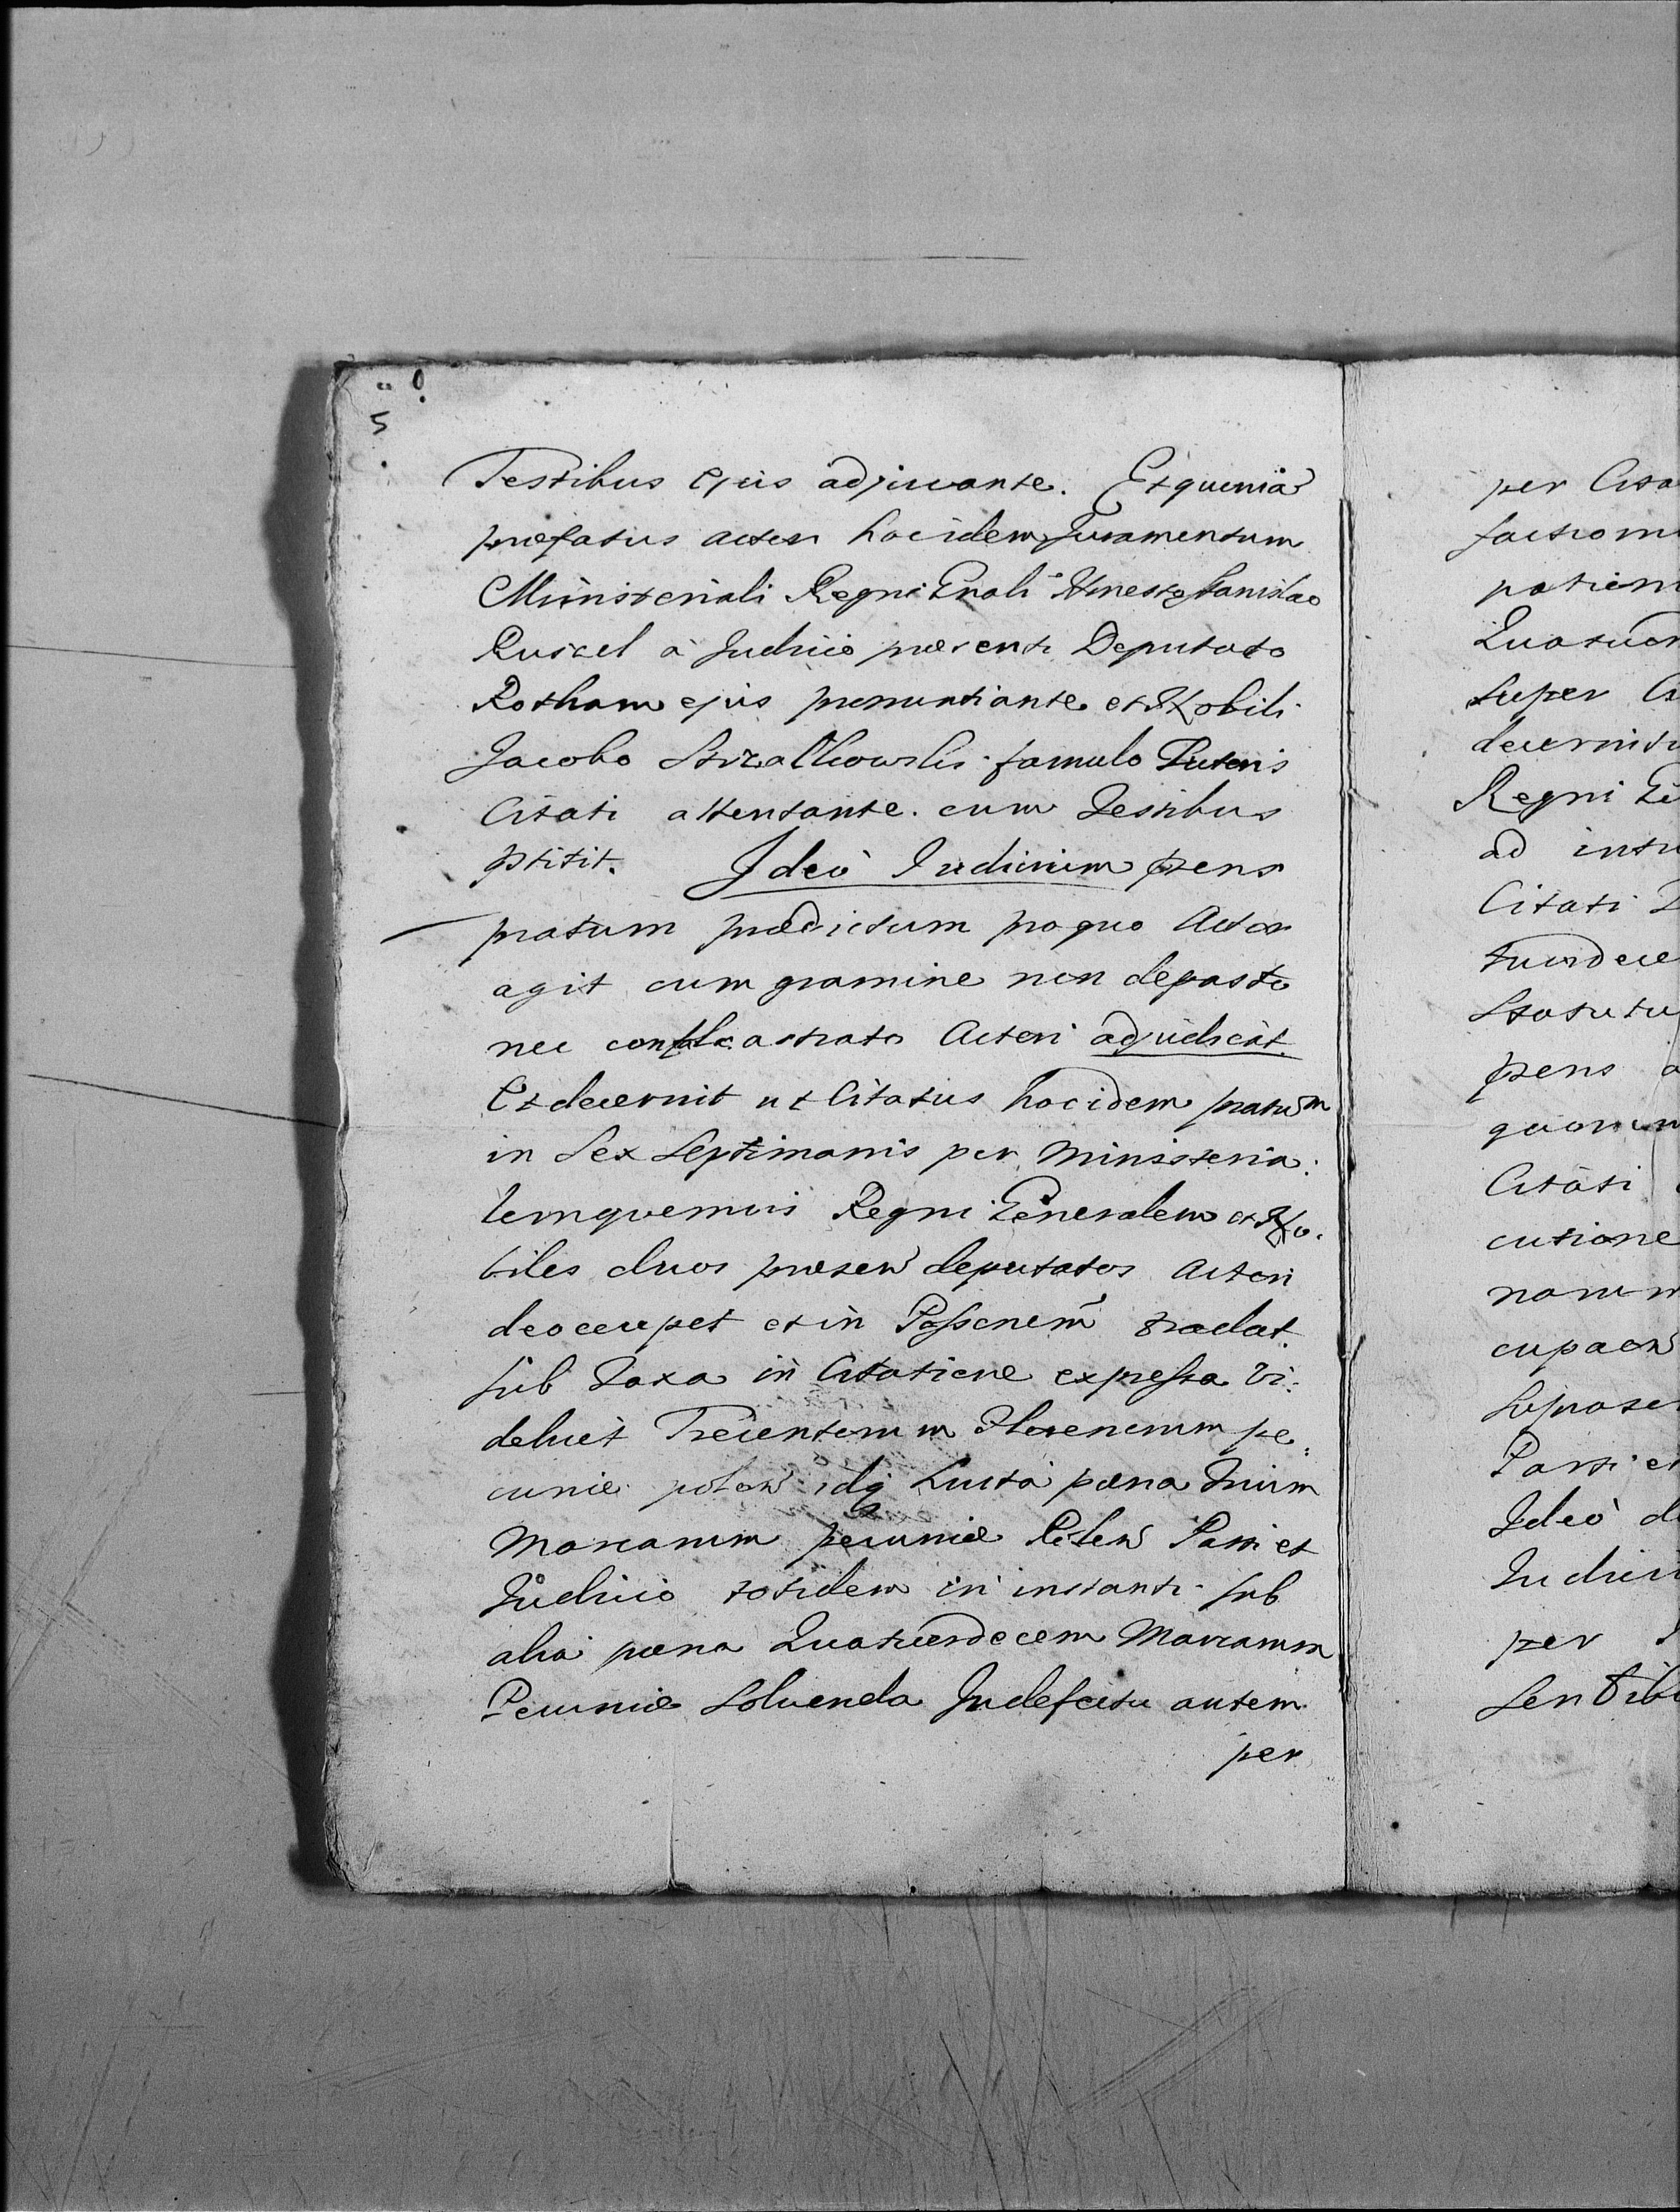 5
Testibus ejus adjuvante. Et quenia
præfatus actor hoc idem Juramentum
Ministeriali Regni Gnali Honesto Stanislao
Ruscel à Judicio præsenti Deputato
Rotham ejus pronuntiante et Nobili
Jacobo Strzałkowski famulo Tutoris
Citati attentante. cum Testibus
pstitit. Ideò Judicium pzens
pratum prædictum pro quo Actor
agit cum gramine non depasto
nec Actori adjudicat.
Et decernit ut Citatus hoc idem pratum
in Sex Septimanis per Ministeria:
lem quemvis Regni Generalem et No.
biles duos præsen deputatos Actori
deoccupet et in Possonem tradat
sub Taxa in Citatione expressa vi:
delicet Trecentorum Florenorum pe:
cuniæ polon idq luita pæna Trium
Marcarum pecuniæ Polon Parti et
Judicio totidem in instanti sub
alia pæna Quatuordecem Marcarum
Pecuniæ Soluenda In defectu autem
per
per Cita
factiom
patiem
Quatuor
super Ci
decernitu
Regni Ge
ad intro
Citati
tuordece
Statutu
pzens a
quorum
Citati
cutione
narum
cupaon
Parti et
Ideò d
Judici
per
sentib